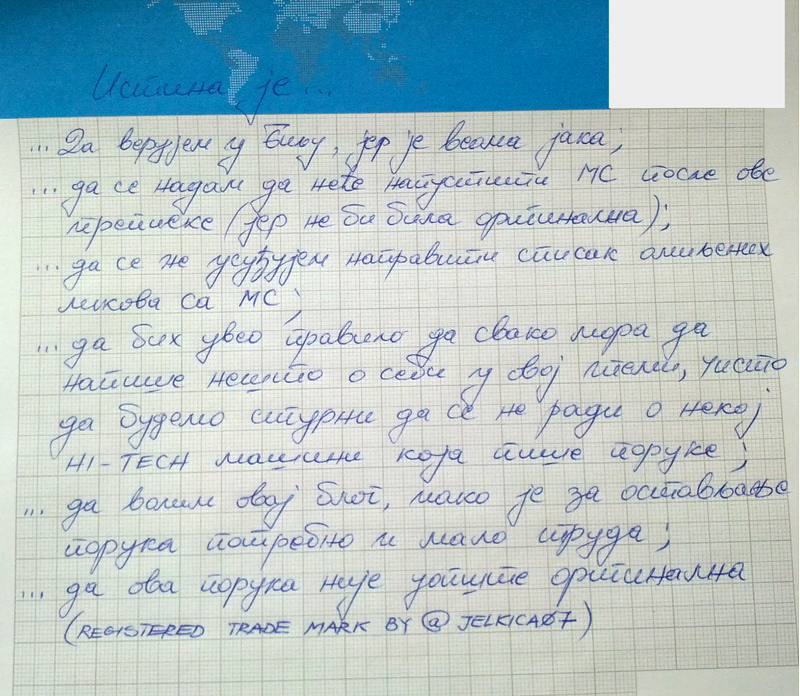 Истина је ...
... Да верујем у јер је веома јака;
... да се надам да неће напустити МС после ове
преписке (јер не би била оригинална);
... да се не усуђујем направити списак омиљених
ликова са МС;
... да бих увео правило да свако мора да
напише нешто о себи у овој теми, чисто
да будемо сигурни да се не ради о некој
HI-TECH машини која пише поруке;
... да волим овај блог, иако је за остављање
порука потребно и мало труда;
... да ова порука није уопште оригинална
(REGISTERED TRADE MARK BY @JELKICA07)